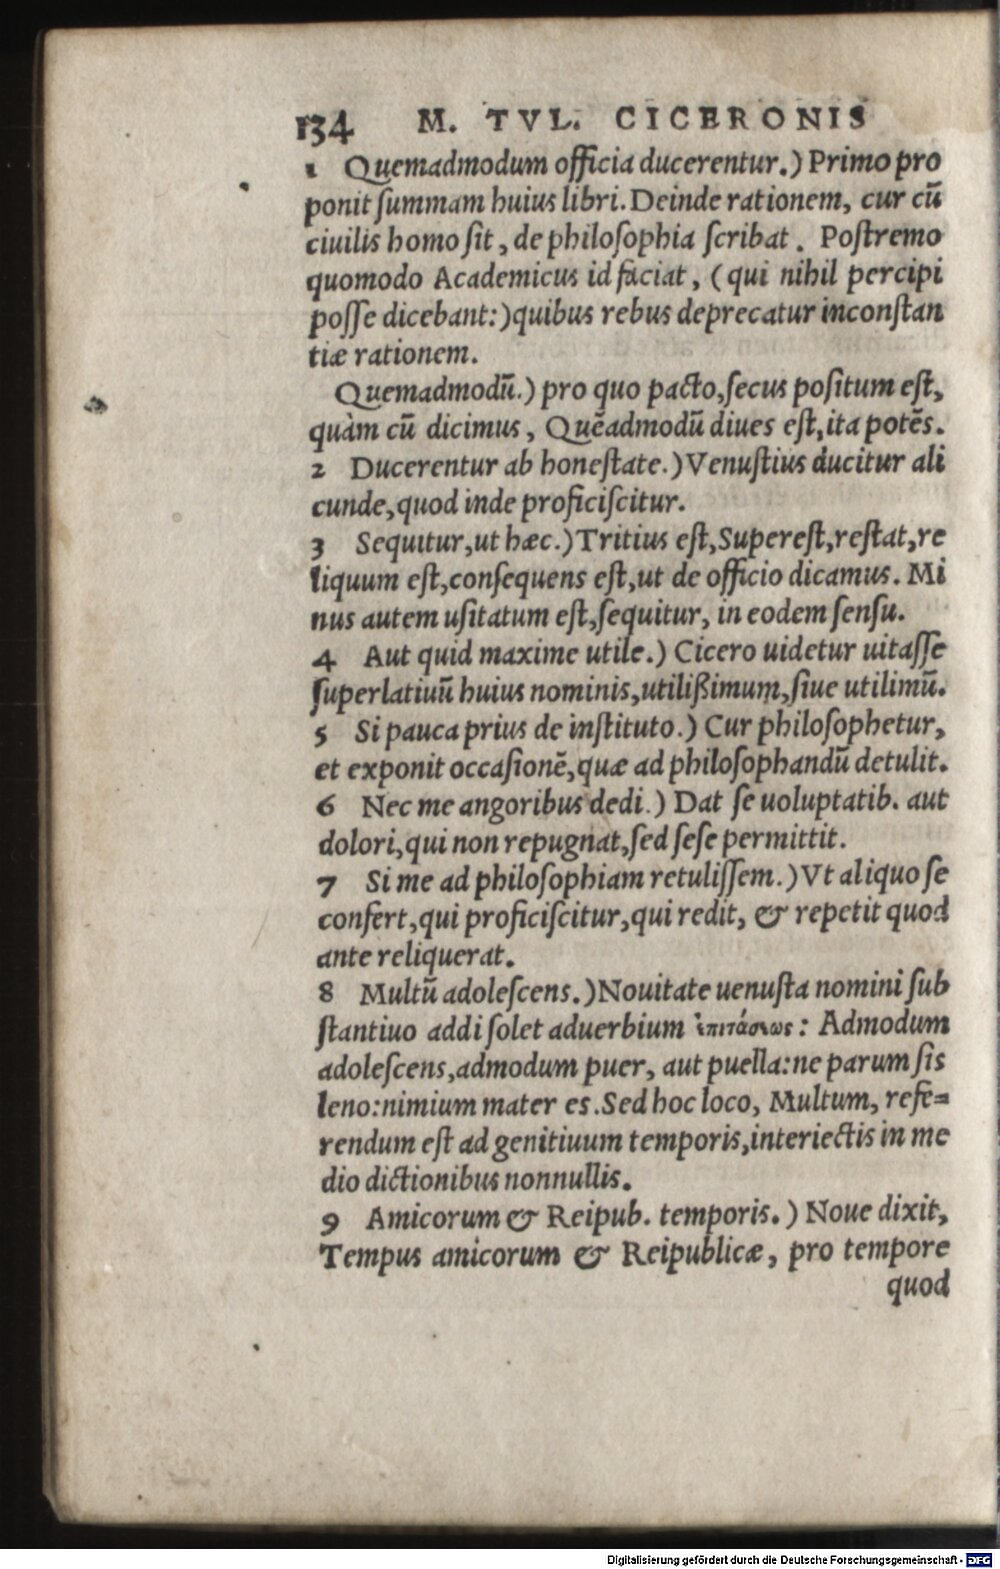 134 M. TVL. CICERONIS
1 Quemadmodum officia ducerentur.) Primo pro
ponit ſummam huius libri. Deinde rationem, cur cū
ciuilis homo ſit, de philoſophia ſcribat. Poſtremo
quomodo Academicus id faciat, (qui nihil percipi
poſſe dicebant:) quibus rebus deprecatur inconſtan
tiæ rationem.
Quemadmodū.) pro quo pacto, ſecus poſitum eſt,
quàm cū dicimus, Quēadmodū diues eſt, ita potēs.
2 Ducerentur ab honeſtate.) Venuſtius ducitur ali
cunde, quod inde proficiſcitur.
3 Sequitur, ut hæc.) Tritius eſt, Supereſt, reſtat, re
liquum eſt, conſequens eſt, ut de officio dicamus. Mi
nus autem uſitatum eſt, ſequitur, in eodem ſenſu.
4 Aut quid maxime utile.) Cicero uidetur uitaſſe
ſuperlatiuū huius nominis, utilißimum, ſiue utilimū.
5 Si pauca prius de inſtituto.) Cur philoſophetur,
et exponit occaſionē, quæ ad philoſophandū detulit.
6 Nec me angoribus dedi.) Dat ſe uoluptatib. aut
dolori, qui non repugnat, ſed ſeſe permittit.
7 Si me ad philoſophiam retuliſſem.) Vt aliquo ſe
confert, qui proficiſcitur, qui redit, & repetit quod
ante reliquerat.
8 Multū adoleſcens.) Nouitate uenuſta nomini ſub
ſtantiuo addi ſolet aduerbium ἐπιτάσεως: Admodum
adoleſcens, admodum puer, aut puella: ne parum ſis
leno: nimium mater es. Sed hoc loco, Multum, refe=
rendum eſt ad genitiuum temporis, interiectis in me
dio dictionibus nonnullis.
9 Amicorum & Reipub. temporis.) Noue dixit,
Tempus amicorum & Reipublicæ, pro tempore
quod
Digitalisierung gefördert durch die Deutsche Forschungsgemeinschaft - DFG